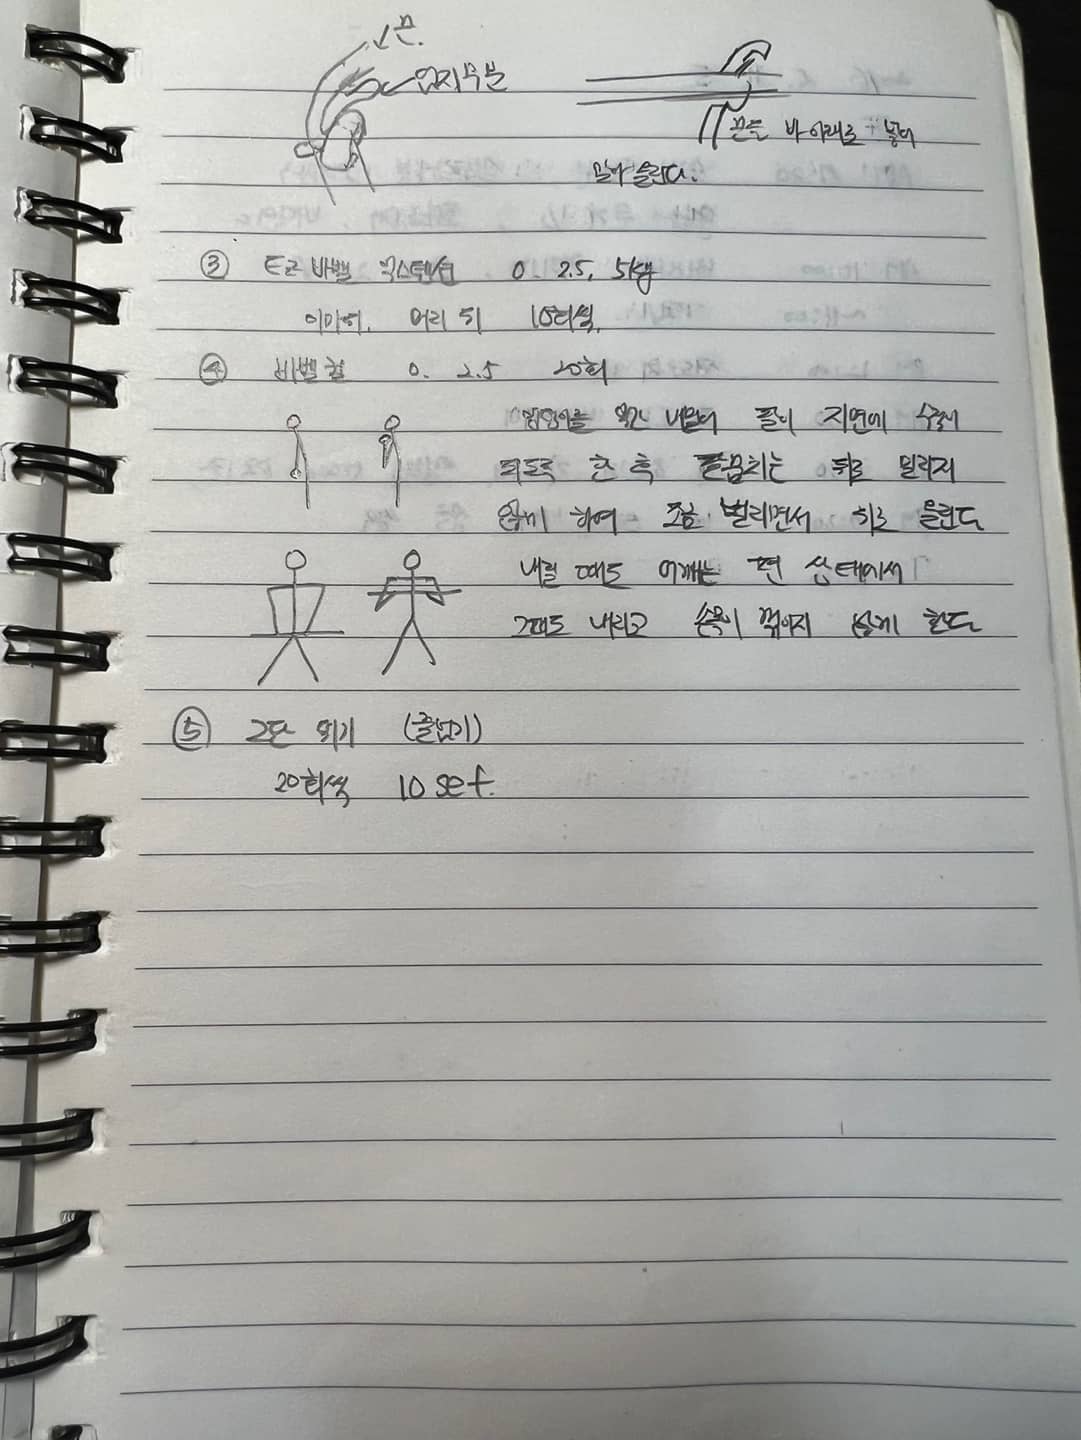 끈.
엄지부분
끈을 바 아래로 넣어
말아 올린다.
③ EZ 바벨 익스텐션 0 2.5, 5kg
이마위. 머리 위 10회씩.
④ 바벨 컬 0. 2.5 20회
내밀어 팔이 지면에 수직이
되도록 한 후 팔꿈치는 뒤로 밀리지
않게 하여 조금 벌리면서 위로 올린다
내릴 때도 어깨는 편 상태에서
그대로 내리고 손목이 꺾이지 않게 한다
⑤ 2단 뛰기 (줄넘기)
20회씩 10 set.